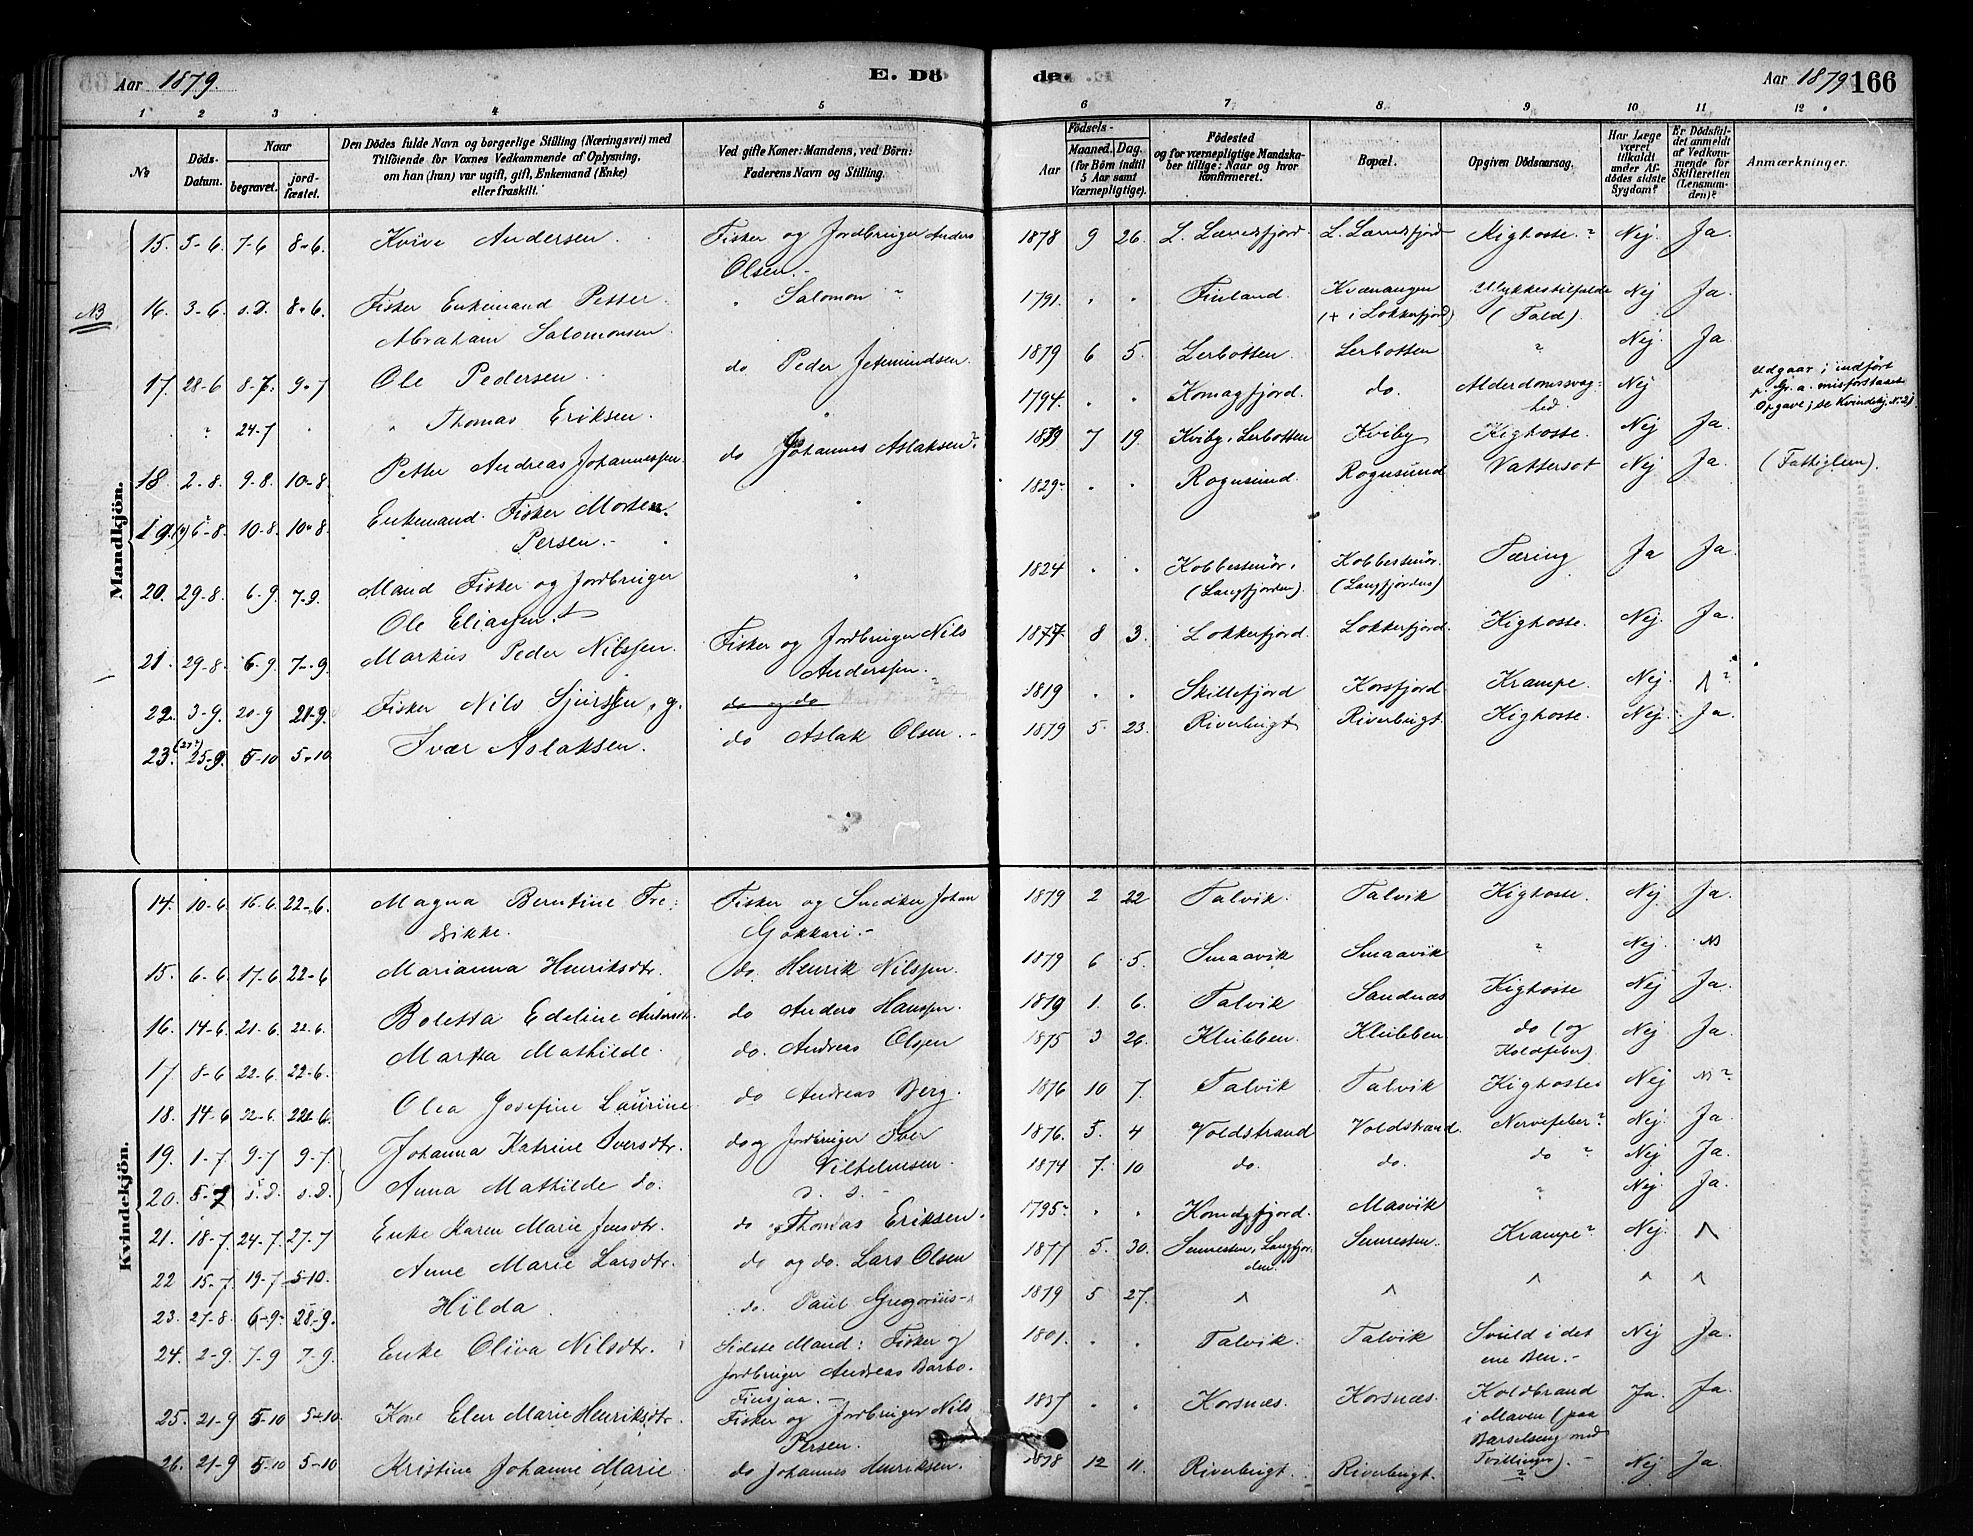 Aar 1879.
E. Dö
de.
Aar 1879
166
1 2 3 4 5 6 7 8 9 10 11 12
No
Döds-Datum.
Naar
begravet.
jord-fæstet.
Den Dödes fulde Navn og borgerlige Stilling (Næringsvei) med
Tilföiende for Voxnes Vedkommende af Oplysning,
om han (hun) var ugift, gift, Enkemand (Enke)
eller fraskilt.
Ved gifte Koner: Mandens, ved Börn:
Faderens Navn og Stilling.
Födsels-
Aar
Maaned. Dag.
(for Börn indtil
5 Aar samt
Værnepligtige).
Födested
og for værnepligtige Mandska-
ber tillige: Naar og hvor
konfirmeret.
Bopæl.
Opgiven Dödsaarsag.
Har Læge
været
tilkaldt
under Af-
dödes sidste
Sygdom?
Er Dödsfal-
det anmeldt
af Vedkom-
mende for
Skifteretten
(Lensman-
den)?
Anmærkninger.
Mandkjön.
15. 5-6 7-6 8-6. Andersen Fisker og Jordbruger Anders Olsen. 1878 9 26. Kighoste Nej. Ja.
NB 16. 3-6. s.D. 8-6. Fisker Enkemand Petter Abraham Salomonsen " Salomon " 1791. " " Finland. Kvænangen (+ i Lokkerfjord) Ulykkestilfælde (Fald). Nej Ja.
17. 28-6 8-7. 9-7 Ole Pedersen do Peder 1879 6 5. Lerbotten. Lerbotten " Nej. Ja
" 24-7 " " Thomas Eriksen. " 1794. " " Komagfjord. do. Alderdomssvaghed. Nej Udgaar; indført p. Gr. a. misforstaaet Opgave; se Kvindekj. No 21
18 2-8. 9-8. 10-8 Petter Andreas Johannessen. do Johannes Aslaksen 1879 7 19. Kviby, Lerbotten Kviby Kighoste. Nej Ja.
19. 6-8. 10-8. 10-8. Enkemand Fisker Morten Persen. " 1829. " " Rognsund. Rognsund Vattersot Nej Ja. (Fattiglem).
20. 29-8. 6-9. 7-9. Mand Fisker og Jordbruger Ole Eliassen. " 1824 " " (Langfjorden). (Langfjorden) Tæring Ja Ja.
21. 29-8. 6-9. 7-9 Markus Peder Nilssen. Fisker og Jordbruger Nils Anderssen. 1877. 8 3. Lokkerfjord. Lokkerfjord. Kighoste. Nej. Ja.
22. 3-9. 20-9 21-9. Fisker Nils Sjurssen, g. do og do 1819 " " Skillefjord Korsfjord Krampe. Nej.
23. (27?) 25-9. 5-10 5-10 Ivær Aslaksen. do Aslak Olsen. 1879 5 23. Riverbugt Riverbugt. Kighoste. Nej. Ja.
Kvindekjön.
14. 10-6 16-6. 22-6. Magna Berntine Fredrikke. Fisker og Snedker Johan Gakkari. 1879 2 22 Talvik. Talvik Kighoste. Nej. Ja.
15. 6-6. 17-6 22-6 Marianna Henriksdtr. do. Henrik Nilssen. 1879 6 5. Smaavik Smaavik " Nej.
16. 14-6. 21-6. 22-6. Boletta Edeline Andersdtr. do Anders Hanssen. 1879 1 6. Talvik Sandnæs Kighoste Nej Ja.
17 8-6 22-6. 22-6. Martha Mathilde. do. Andreas Olsen 1875 3 26. Klubben. Klubben do (og Koldfeber) Nej Ja.
18. 14-6 22-6. 22-6. Olea Josefine Laurine do Andreas Berg. 1876 10 7. Talvik Talvik Kighoste Nej
19. 1-7. 9-7 9-7 Johanna Katrine Iversdtr. do og Jordbruger Iver Vilhelmsen. 1876. 5. 4 Voldstrand Voldstrand. Nervefeber? Nej. Ja.
20. 5-7 s.D. s.D. Anna Mathilde do. D. D. 1874 7. 10 do. do. do " Nej Ja.
21. 18-7. 24-7. 27-7 Enke Karen Marie Jensdtr. do Thomas Eriksen. 1795. " " Komagfjord. Masvik " Nej. Ja.
22 15-7 19-7 5-10. Anne Marie Larsdtr. do og do. Lars Olsen 1877 5. 30. Krampe? Nej.
23. 27-8. 6-9. 28-9. Hilda. do. Paul Gregorius- 1879 5 27.
24. 2-9. 7-9 7-9. Enke Oliva Nilsdtr. Sidste Mand: Fisker og Jordbruger Andreas Barbo. 1801. " " Talvik. Talvik Svuld i det ene Ben. Nej Ja.
25. 21-9 5-10 5-10. Kone Elen Marie Henriksdtr. Fisker og Jordbruger Nils Persen. 1837 " " Korsnæs. Korsnæs. Koldbrand i Maven (paa Barselseng med Tvillinger). Ja. Ja.
26. 21-9 5-10 5-10 Kristine Johanne Marie do Johannes Henriksen. 1878 12 11. Riverbugt. Riverbugt. ? Nej Ja.